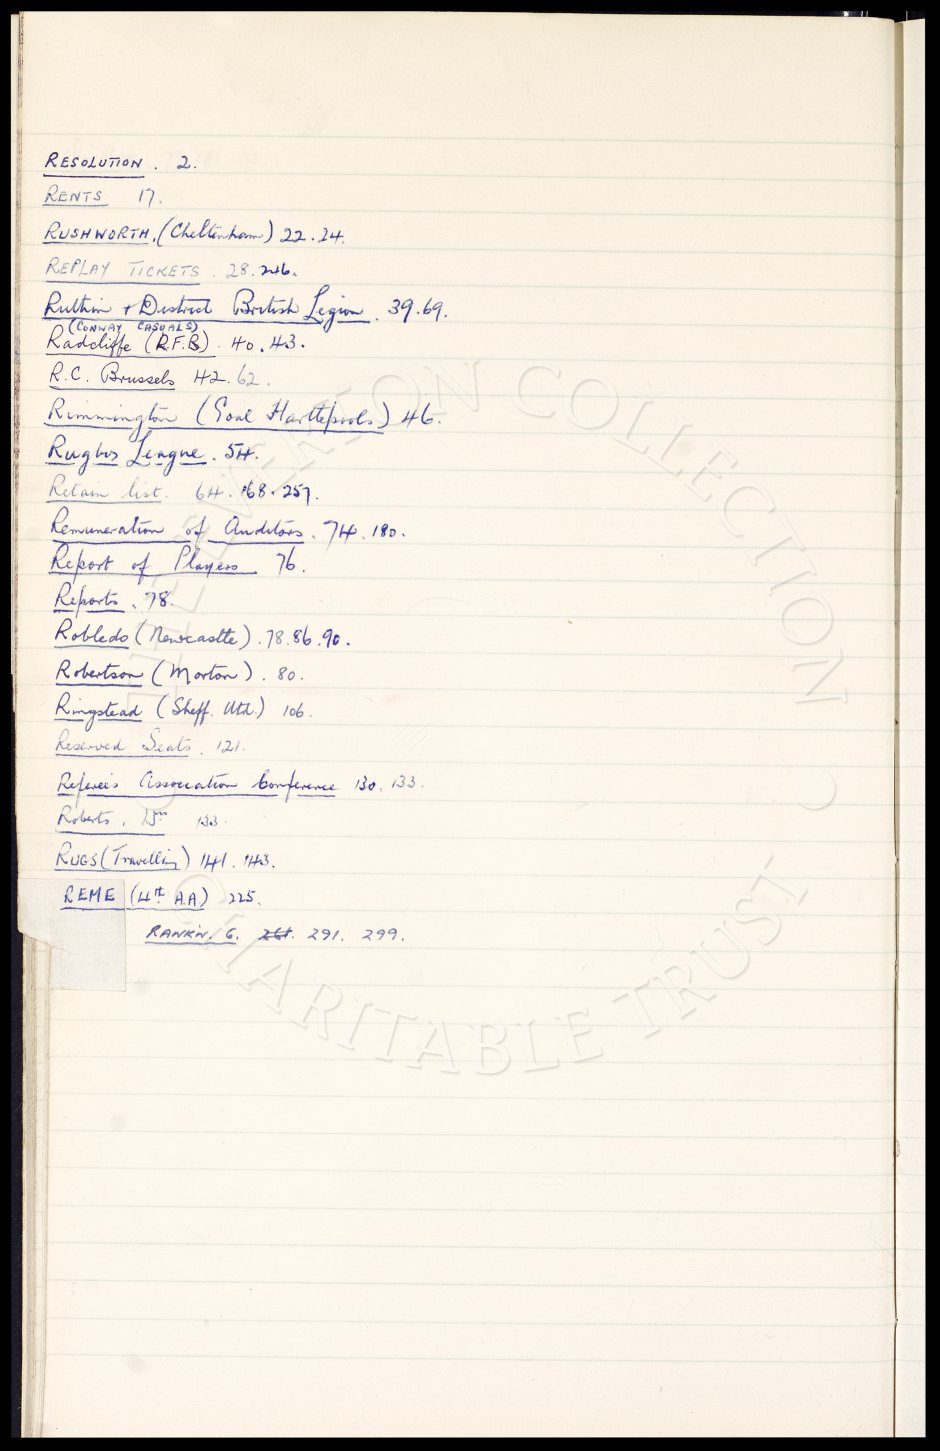 RESOLUTION. 2.
RENTS 17.
RUSHWORTH. (Cheltenham) 22. 24.
REPLAY TICKETS. 28. 246.
Ruthin + District British Legion. 39. 69.
(CONWAY CASUALS)
Radcliffe (R.F.B). 40. 43.
R.C. Brussels 42. 62.
Rimmington (Goal Hartlepools) 46.
Rugby League. 54.
Retain list. 64. 168. 257.
Remuneration of Auditors. 74. 180.
Report of Players 76.
Reports. 78.
Robledo (Newcastle). 78. 86. 90.
Robertson (Morton). 80.
Ringstead (Sheff. Utd.) 106.
Reserved Seats. 121.
Referees Association Conference 130. 133.
Roberts. 133.
RUGS (Travelling) 141. 143.
REME (4th A.A) 225.
RANKIN. G. 261. 291. 299.
THE EVERTON COLLECTION
CHARITABLE TRUST